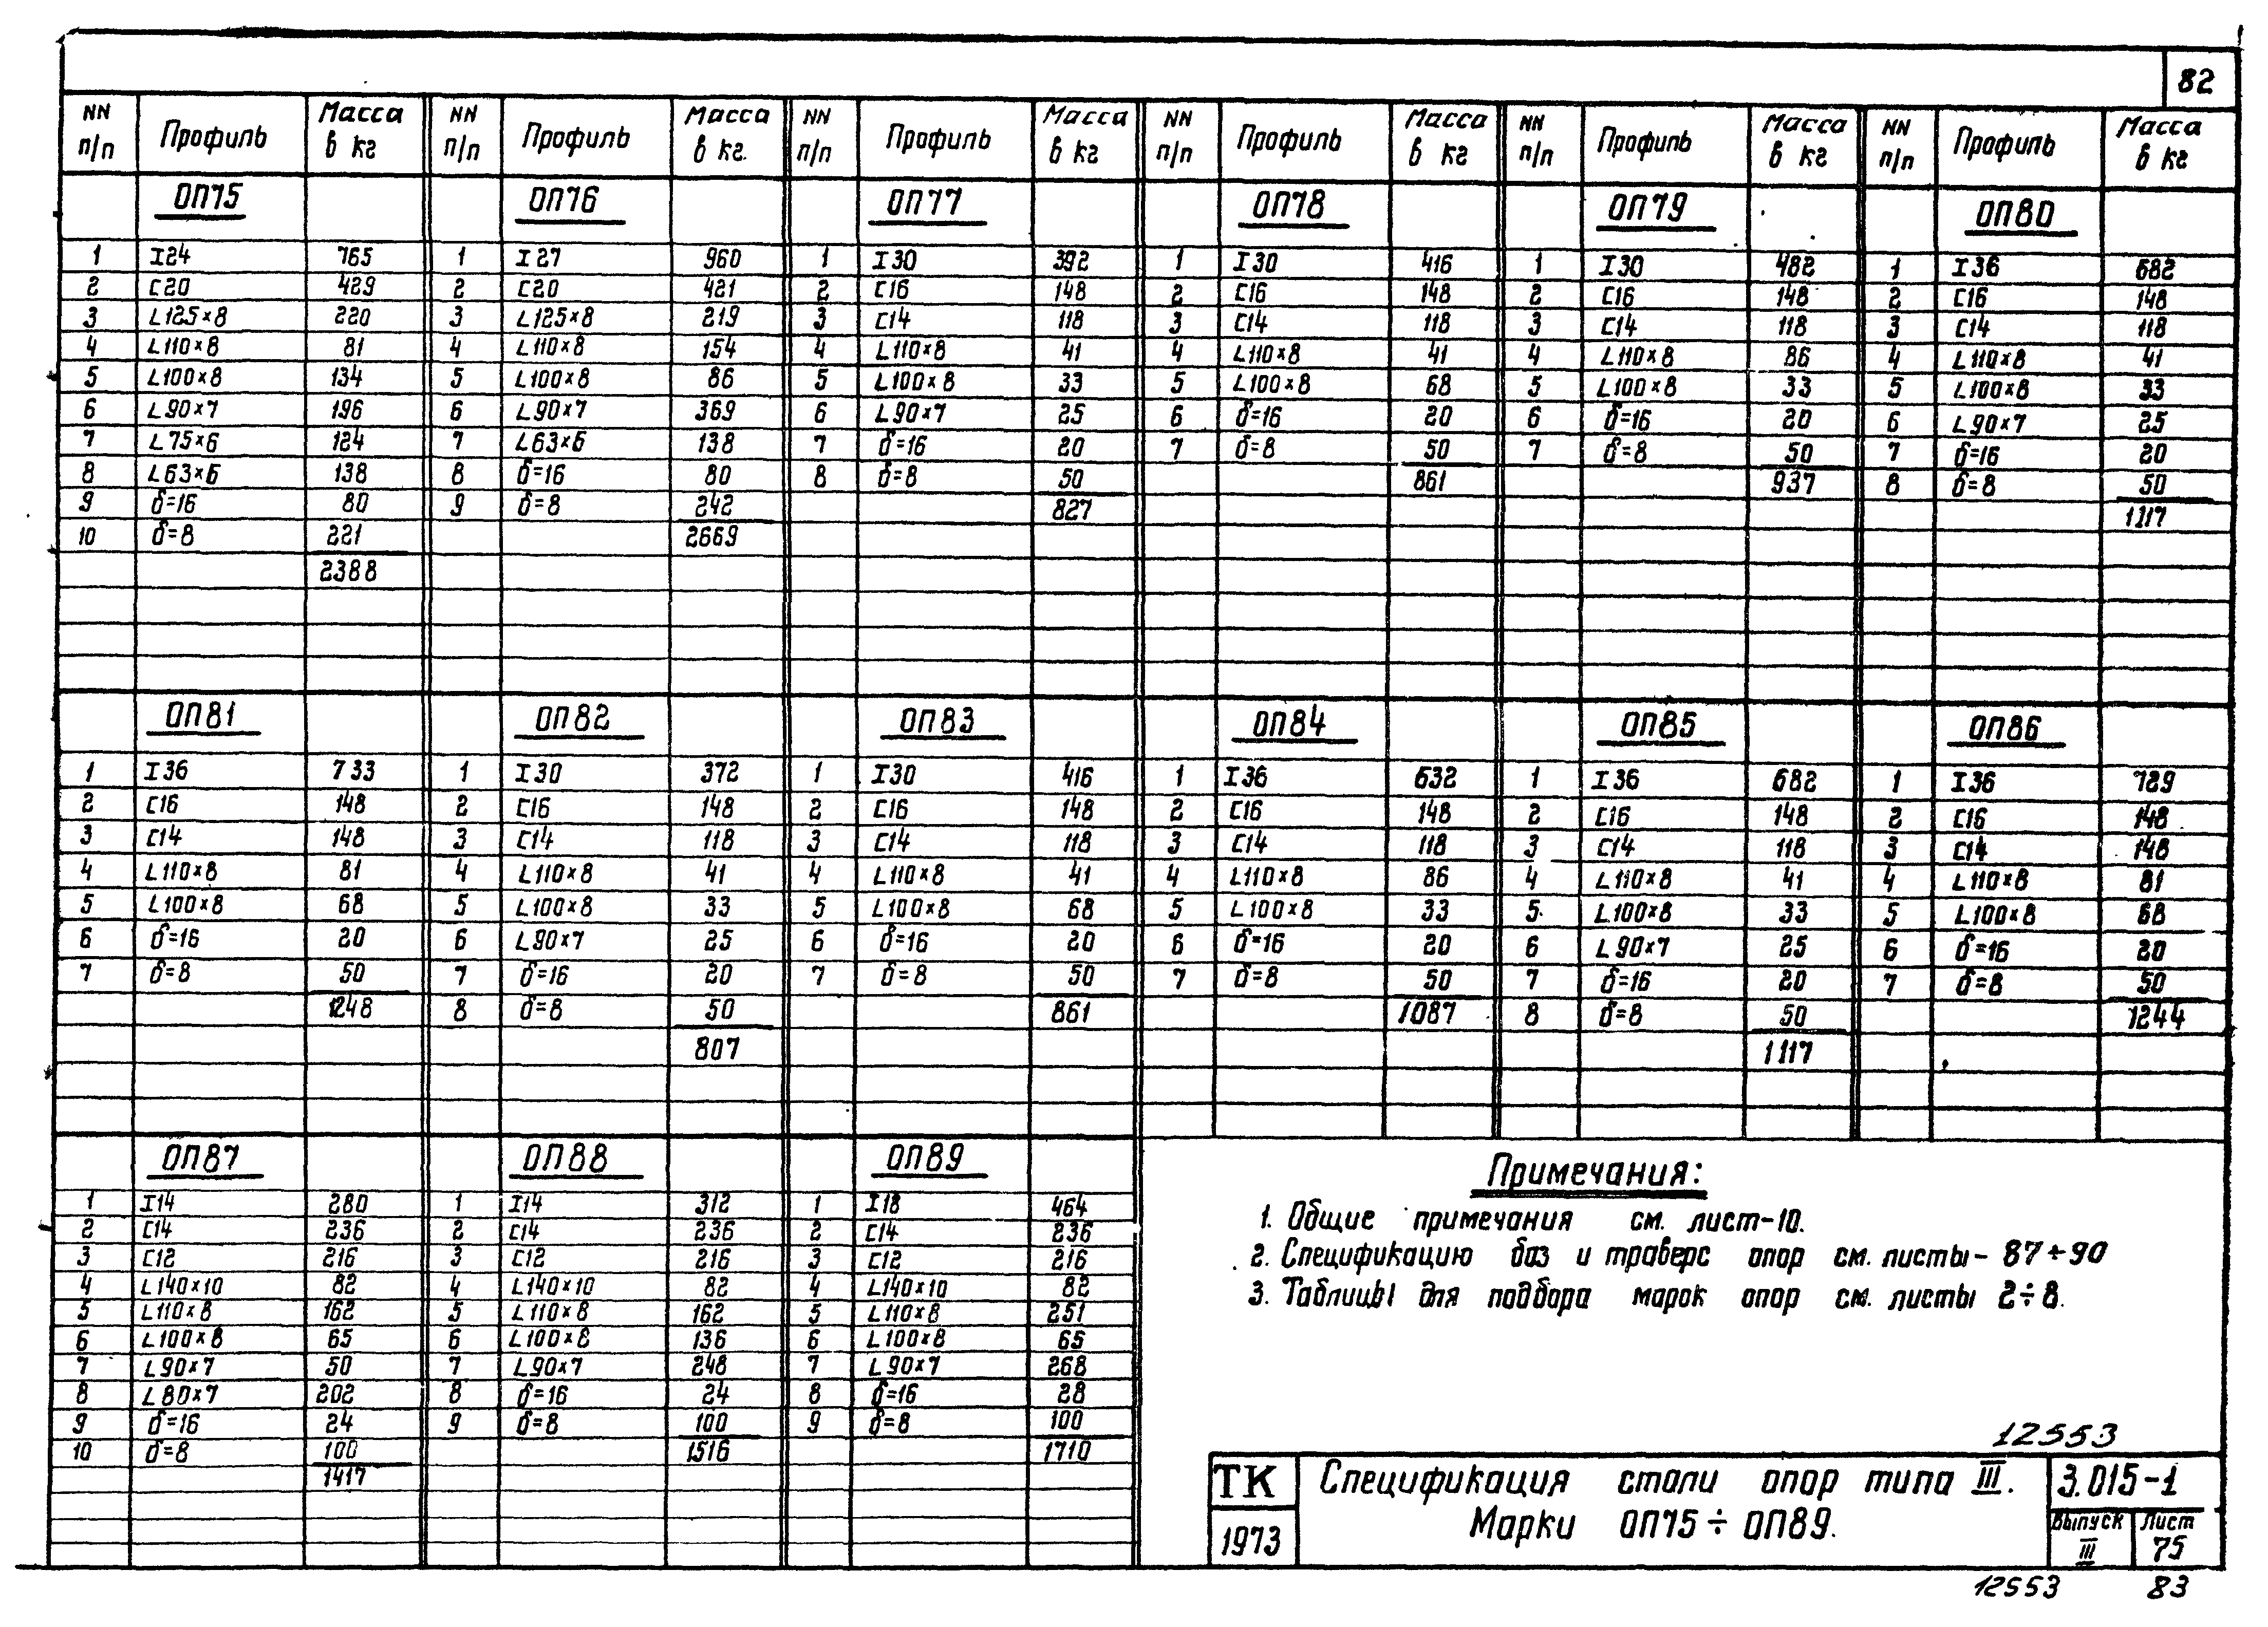 82
NN п/п Профиль Масса в кг NN п/п Профиль Масса в кг. NN п/п Профиль Масса в кг NN п/п Профиль Масса в кг NN п/п Профиль Масса в кг NN п/п Профиль Масса в кг
ОП75 ОП76 ОП77 ОП78 ОП79 ОП80
1 I24 765 1 I27 960 1 I30 392 1 I30 416 1 I30 482 1 I36 682
2 С20 429 2 С20 421 2 С16 148 2 С16 148 2 С16 148 2 С16 148
3 L125×8 220 3 L125×8 219 3 С14 118 3 С14 118 3 С14 118 3 С14 118
4 L110×8 81 4 L110×8 154 4 L110×8 41 4 L110×8 41 4 L110×8 86 4 L110×8 41
5 L100×8 134 5 L100×8 86 5 L100×8 33 5 L100×8 68 5 L100×8 33 5 L100×8 33
6 L90×7 196 6 L90×7 369 6 L90×7 25 6 δ=16 20 6 δ=16 20 6 L90×7 25
7 L75×6 124 7 L63×6 138 7 δ=16 20 7 δ=8 50 7 δ=8 50 7 δ=16 20
8 L63×6 138 8 δ=16 80 8 δ=8 50 861 937 8 δ=8 50
9 δ=16 80 9 δ=8 242 827 1117
10 δ=8 221 2669
2388
ОП81 ОП82 ОП83 ОП84 ОП85 ОП86
1 I36 733 1 I30 372 1 I30 416 1 I36 632 1 I36 682 1 I36 729
2 С16 148 2 С16 148 2 С16 148 2 С16 148 2 С16 148 2 С16 148
3 С14 148 3 С14 118 3 С14 118 3 С14 118 3 С14 118 3 С14 148
4 L110×8 81 4 L110×8 41 4 L110×8 41 4 L110×8 86 4 L110×8 41 4 L110×8 81
5 L100×8 68 5 L100×8 33 5 L100×8 68 5 L100×8 33 5. L100×8 33 5 L100×8 68
6 δ=16 20 6 L90×7 25 6 δ=16 20 6 δ=16 20 6 L90×7 25 6 δ=16 20
7 δ=8 50 7 δ=16 20 7 δ=8 50 7 δ=8 50 7 δ=16 20 7 δ=8 50
1248 8 δ=8 50 861 1087 8 δ=8 50 1244
807 1117
ОП87 ОП88 ОП89
1 I14 280 1 I14 312 1 I18 464
2 С14 236 2 С14 236 2 С14 236
3 С12 216 3 С12 216 3 С12 216
4 L140×10 82 4 L140×10 82 4 L140×10 82
5 L110×8 162 5 L110×8 162 5 L110×8 251
6 L100×8 65 6 L100×8 136 6 L100×8 65
7 L90×7 50 7 L90×7 248 7 L90×7 268
8 L80×7 202 8 δ=16 24 8 δ=16 28
9 δ=16 24 9 δ=8 100 9 δ=8 100
10 δ=8 100 1516 1710
1417
Примечания:
1. Общие примечания см. лист-10.
2. Спецификацию баз и траверс опор см. листы - 87÷90
3. Таблицы для подбора марок опор см. листы 2÷8.
12553
ТК
1973
Спецификация стали опор типа III.
Марки ОП75÷ОП89.
3.015-1
Выпуск III
Лист 75
12553 83